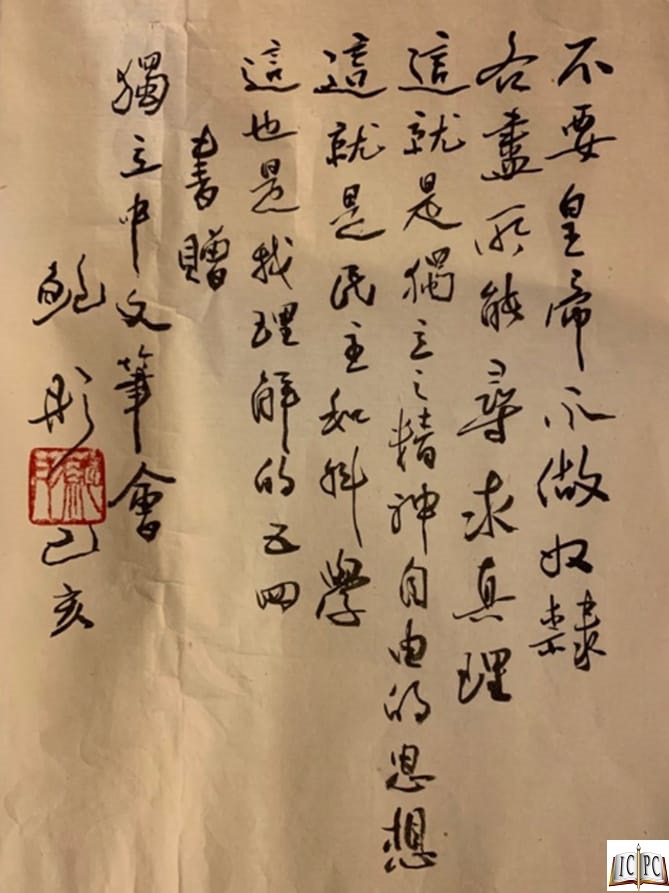 不要皇帝不做奴隸
各盡所能尋求真理
這就是獨立之精神自由的思想
這就是民主和科學
這也是我理解的五四
書贈
獨立中文筆會
鮑彤
己亥
ICPC